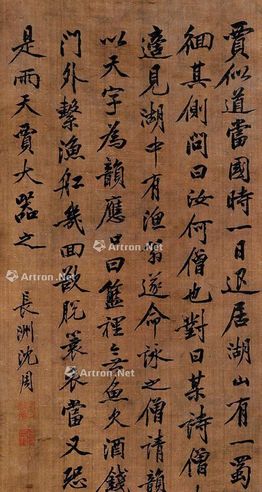 賈似道當國時一日退居湖山有一蜀
徊其側問曰汝何僧也對曰某詩僧
遠見湖中有漁翁遂命詠之僧請韻
以天字為韻應口曰籃裡無魚欠酒錢
門外繫漁船幾回欲脫蓑衣當又恐
是雨天賈大器之
長洲沈周
Artron.Net
Artron.Net
Artron.Net
Artron.Net